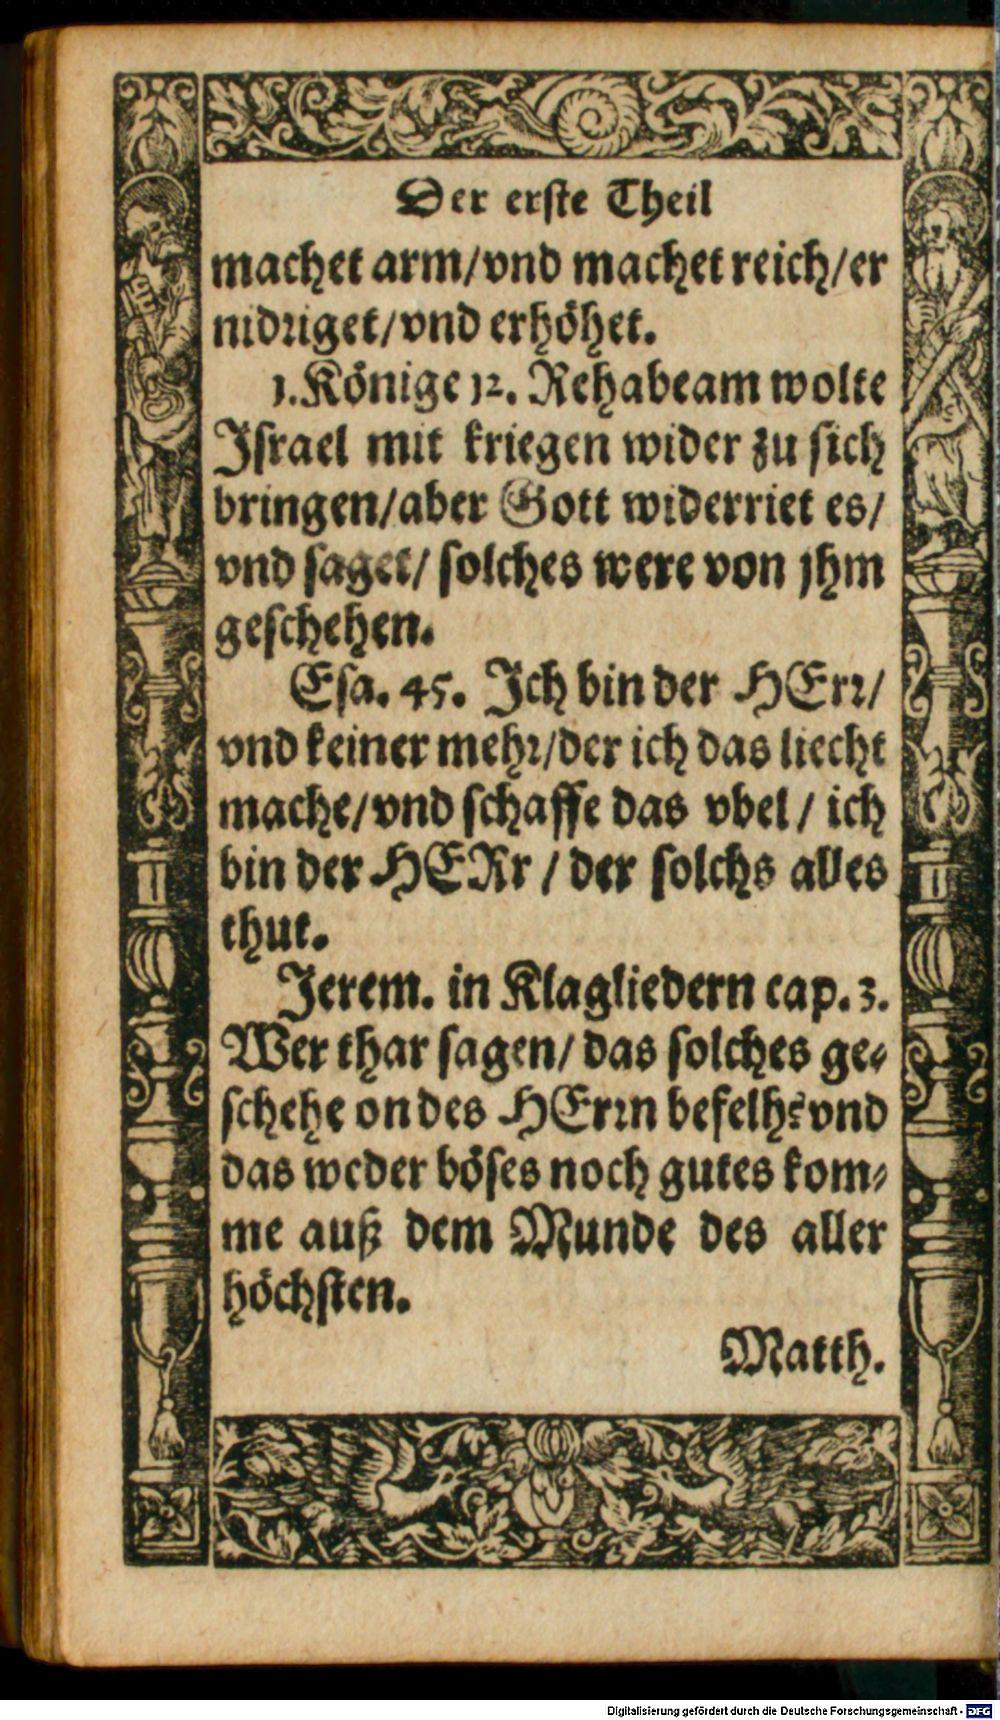 Der erſte Theil
machet arm/vnd machet reich/er
nidꝛiget/vnd erhöhet.
1.Könige 12. Rehabeam wolte
Iſrael mit kriegen wider zu ſich
bringen/aber Gott widerriet es/
vnd ſaget/ ſolches were von jhm
geſchehen.
Eſa. 45. Ich bin der HErꝛ/
vnd keiner mehꝛ/der ich das liecht
mache/vnd ſchaffe das vbel/ ich
bin der HERr / der ſolchs alles
thut.
Jerem. in Klagliedern cap. 3.
Wer thar ſagen/ das ſolches ge⸗
ſchehe on des HErꝛn befelh? vnd
das weder böſes noch gutes kom⸗
me auß dem Munde des aller
höchſten.
Matth.
Digitalisierung gefördert durch die Deutsche Forschungsgemeinschaft - DFG